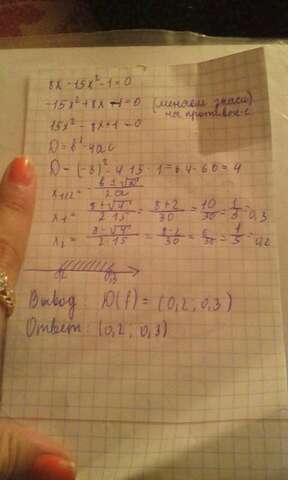 8x - 15x² - 1 = 0
-15x² + 8x - 1 = 0 (меняем знаки
на противоп-е)
15x² - 8x + 1 = 0
D = b² - 4ac
D = (-8)² - 4·15·1 = 64 - 60 = 4
x₁,₂ = (-b ± √D) / 2a
x₁ = (8 + √4) / (2·15) = (8 + 2) / 30 = 10/30 = 1/3 = 0,3
x₂ = (8 - √4) / (2·15) = (8 - 2) / 30 = 6/30 = 1/5 = 0,2
0,2 0,3
Вывод: D(f) = (0,2; 0,3)
Ответ: (0,2; 0,3)